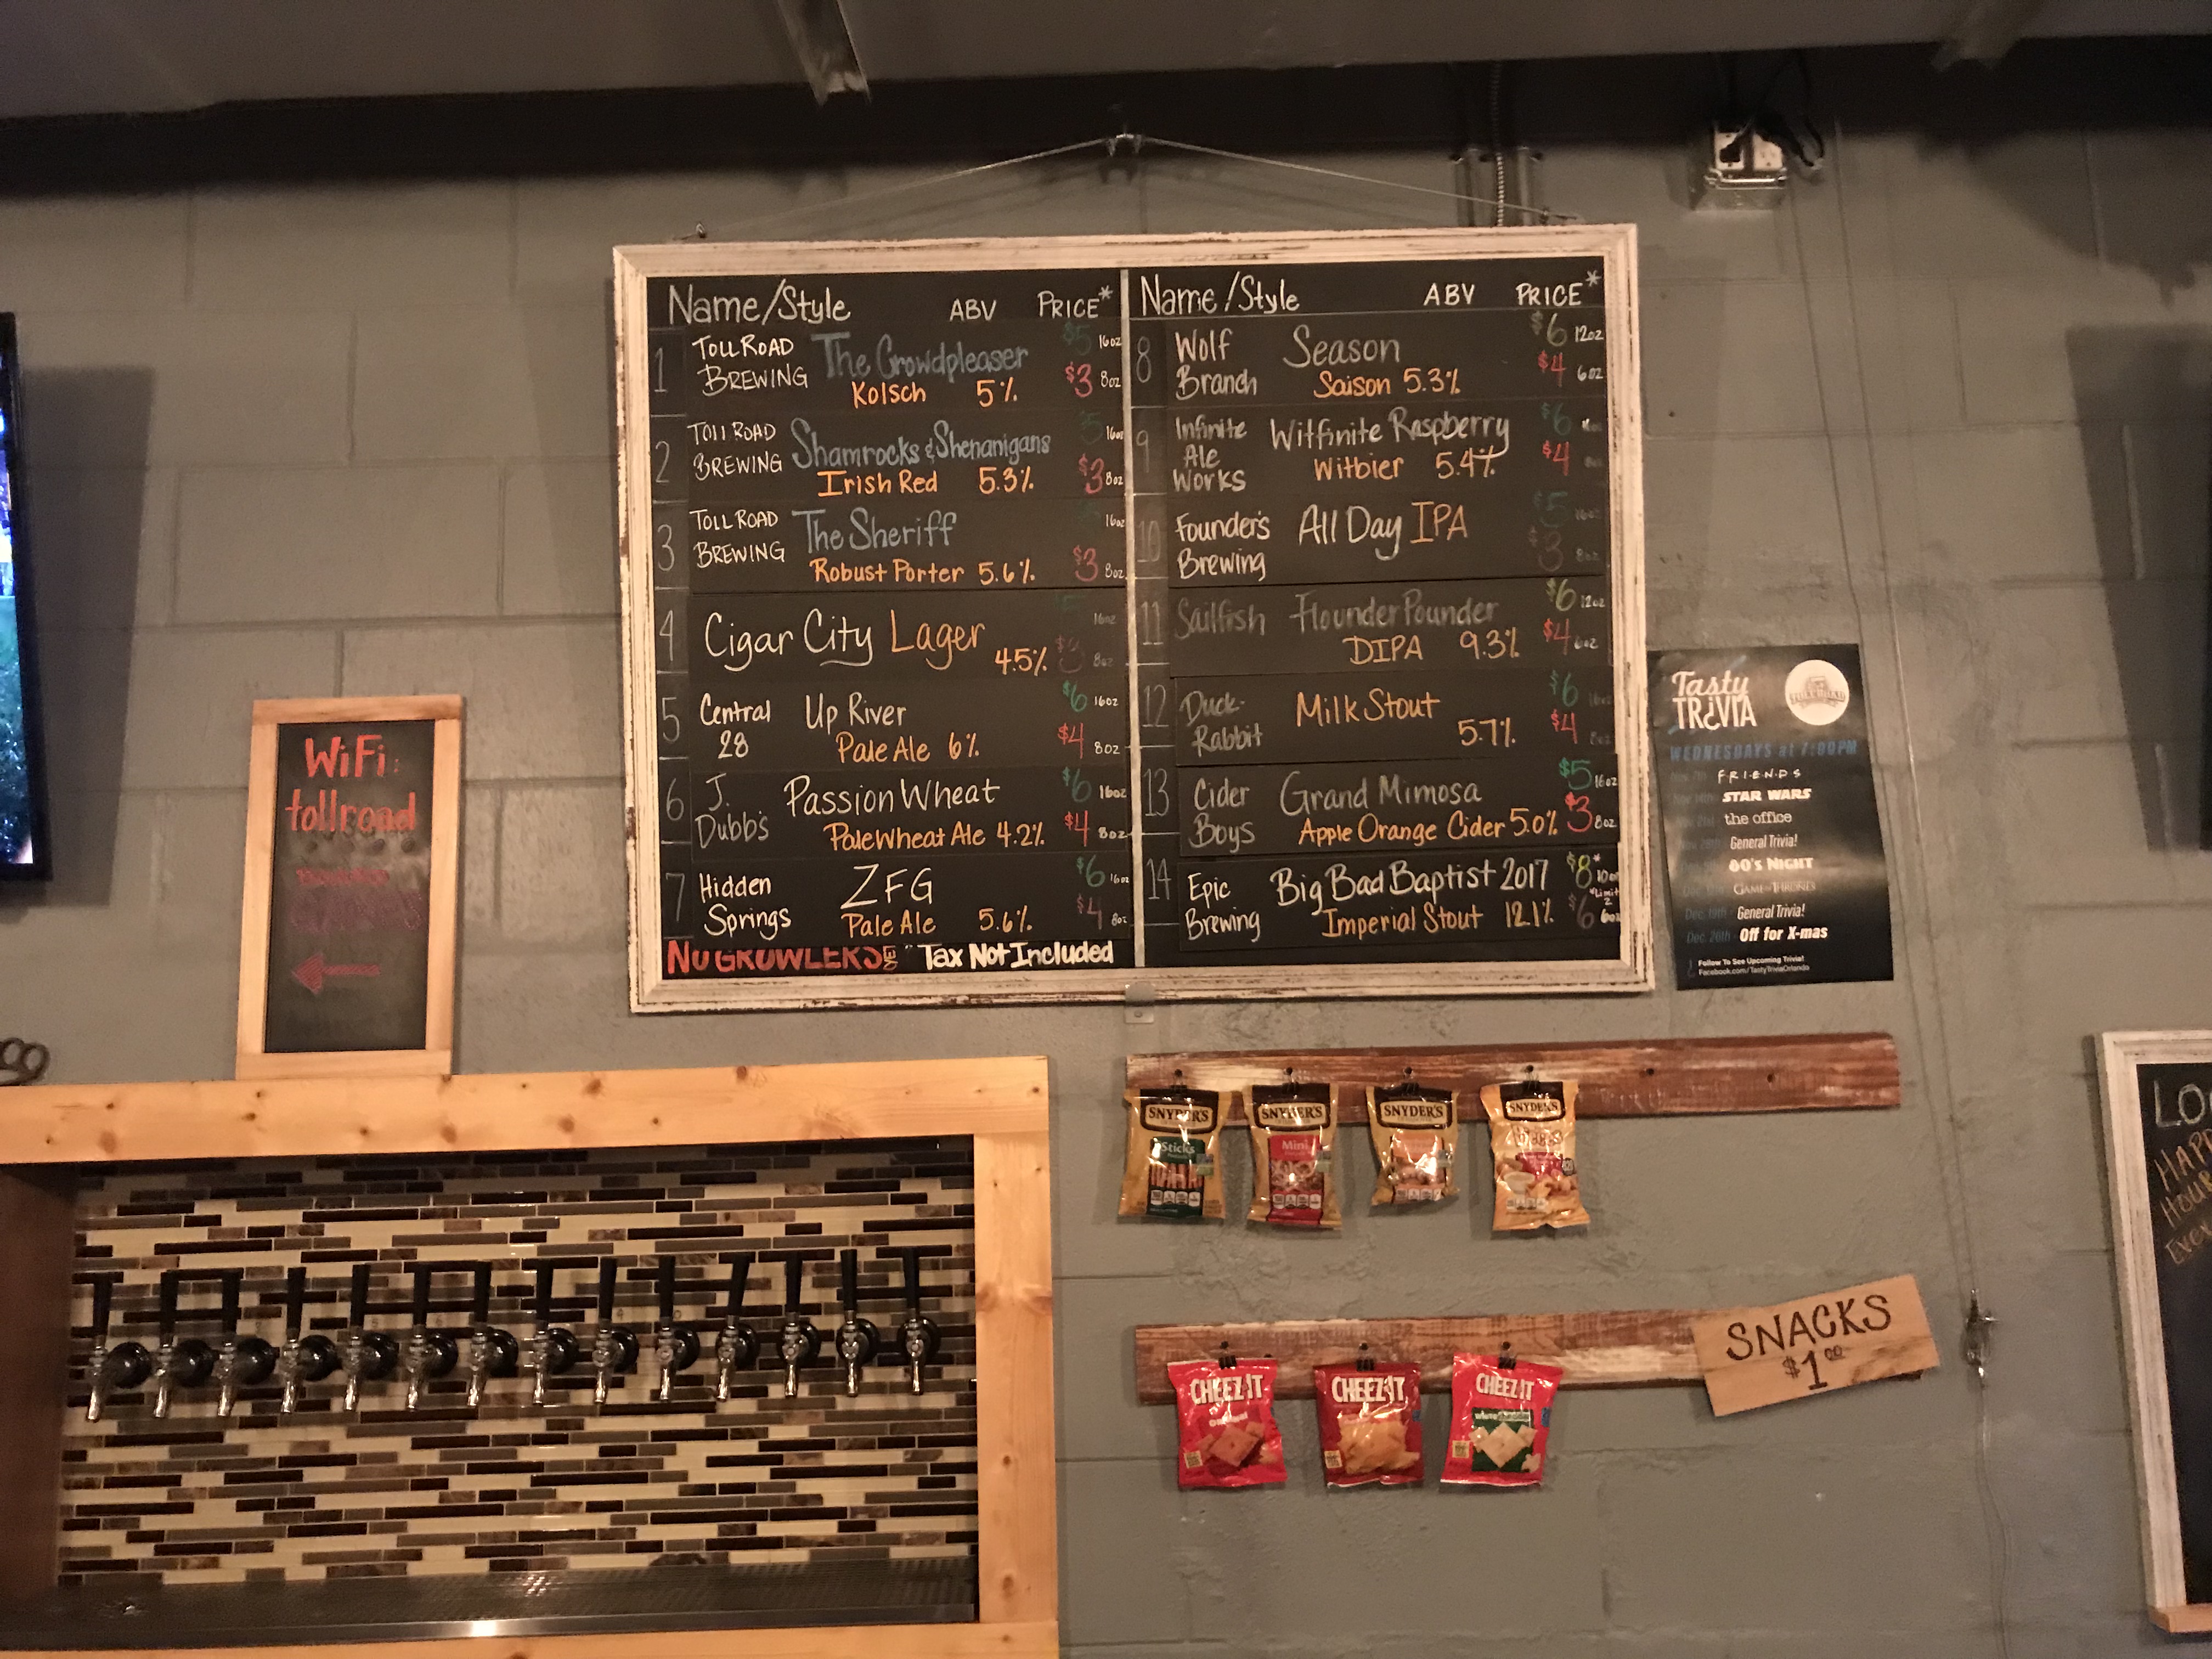 Name/Style ABV PRICE*
1 TOLL ROAD BREWING The Crowdpleaser $5 16oz
Kolsch 5% $3 8oz
2 TOLL ROAD BREWING Shamrocks & Shenanigans 5 16oz
Irish Red 5.3% $3 8oz
3 TOLL ROAD BREWING The Sheriff 16oz
Robust Porter 5.6% $3 8oz
4 Cigar City Lager 16oz
4.5% $3 8oz
5 Central 28 Up River $6 16oz
Pale Ale 6% $4 8oz
6 J. Dubb's Passion Wheat $6 16oz
Pale Wheat Ale 4.2% $4 8oz
7 Hidden Springs ZFG $6 16oz
Pale Ale 5.6% $4 8oz
NO GROWLERS YET * Tax Not Included
Name/Style ABV PRICE*
8 Wolf Branch Season $6 12oz
Saison 5.3% $4 6oz
9 Infinite Ale Works Witfinite Raspberry $6
Witbier 5.4% $4
10 Founder's Brewing All Day IPA $5 16oz
$3 8oz
11 Sailfish Flounder Pounder $6 12oz
DIPA 9.3% $4 6oz
12 Duck-Rabbit Milk Stout $6 16oz
5.7% $4 8oz
13 Cider Boys Grand Mimosa $5 16oz
Apple Orange Cider 5.0% $3 8oz
14 Epic Brewing Big Bad Baptist 2017 $8* 10oz
*Limit 2
Imperial Stout 12.1% $6 6oz
WiFi:
tollroad
Tasty
TRiVIA
WEDNESDAYS at 7:00PM
F·R·I·E·N·D·S
STAR WARS
the office
General Trivia!
80's NIGHT
GAME OF THRONES
Dec. 19th - General Trivia!
Dec. 26th - Off for X-mas
Follow To See Upcoming Trivia!
Facebook.com/TastyTriviaOrlando
SNYDER'S
Sticks
SNYDER'S
Mini
SNYDER'S
SNYDER'S
CHEEZ IT
original
CHEEZ IT
CHEEZ IT
white cheddar
SNACKS
$1.00